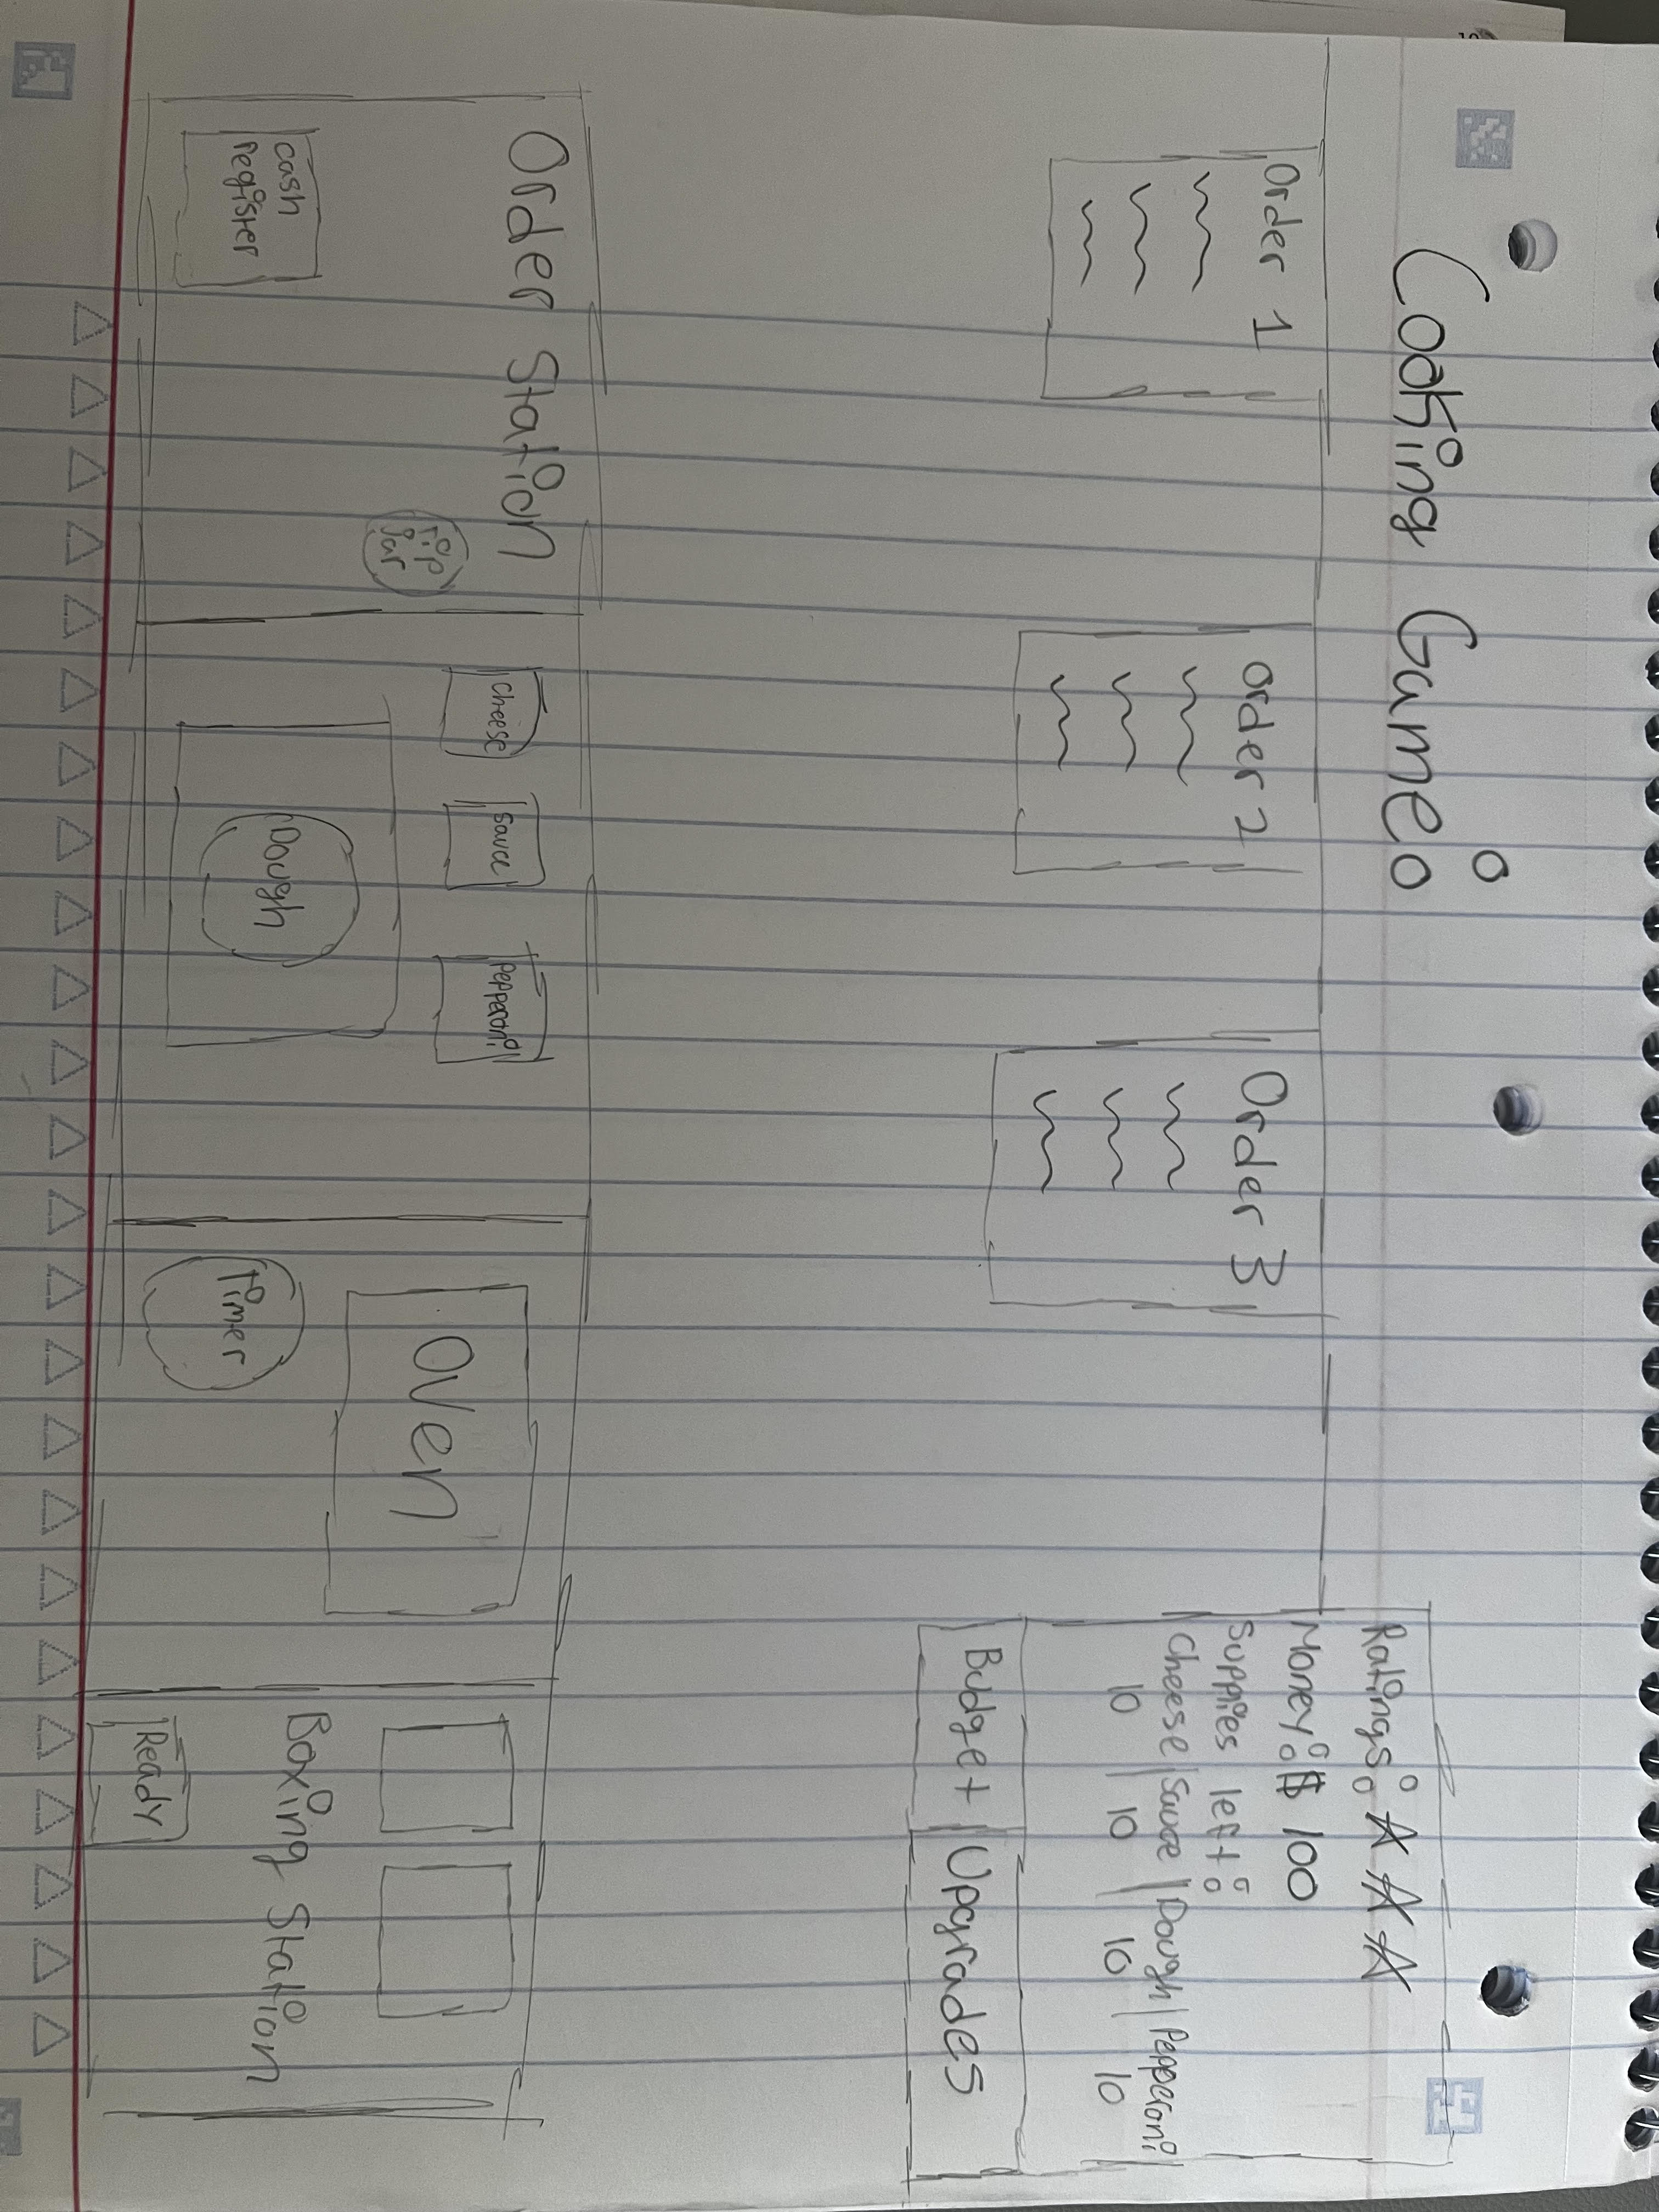 Cooking Game:
Order 1
Order 2
Order 3
Ratings: ☆☆☆
Money: $ 100
Supplies left:
Cheese | Sauce | Dough | Pepperoni
10 | 10 | 10 10
Budget | Upgrades
Order Station
Tip
Jar
Cash
Register
Cheese
Sauce
Pepperoni
Dough
Oven
Timer
Boxing Station
Ready